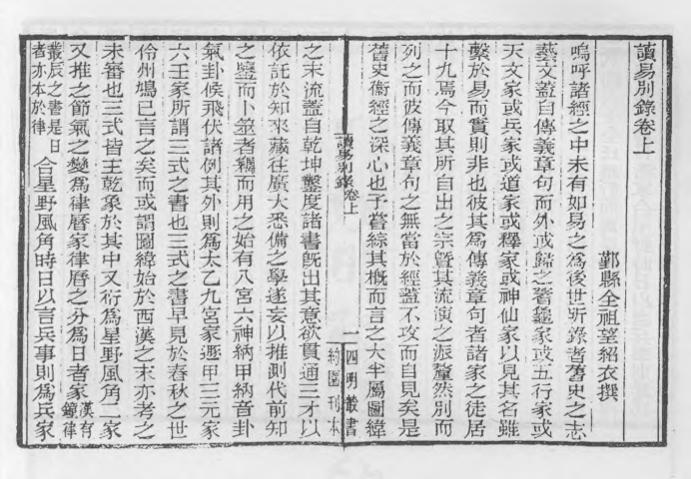 讀易別錄卷上
鄞縣全祖望紹衣撰
嗚呼諸經之中未有如易之爲後世所錄者舊史之志
藝文蓋自傳義章句而外或歸之蓍龜家或五行家或
天文家或兵家或道家或釋家或神仙家以見其名雖
繫於易而實則非也彼其爲傳義章句者諸家之徒居
十九焉今取其所自出之宗暨其流演之派釐然別而
列之而彼傳義章句之無當於經蓋不攻而自見矣是
舊史衞經之深心也予嘗綜其概而言之大半屬圖緯
讀易別錄卷上
一
四明叢書
約園刊本
之末流蓋自乾坤鑿度諸書旣出其意欲貫通三才以
依託於知來藏往廣大悉備之學遂妄以推測代前知
之鑒而卜筮者竊而用之始有八宮六神納甲納音卦
氣卦候飛伏諸例其外則爲太乙九宮家遯甲三元家
六壬家所謂三式之書也三式之書早見於春秋之世
伶州鳩已言之矣而或謂圖緯始於西漢之末亦考之
未審也三式皆主乾象於其中又衍爲星野風角二家
又推之節氣之變爲律曆家律曆之分爲日者家漢有鐘律
叢辰之書是日者亦本於律合星野風角時日以言兵事則爲兵家